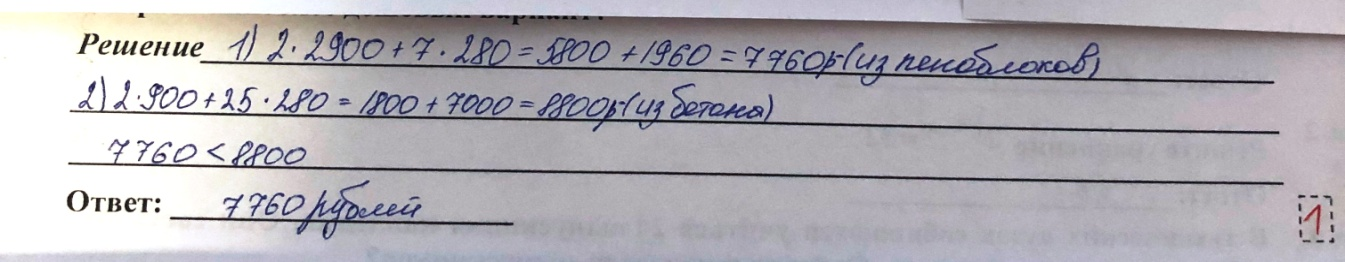 Решение 1) 2·2900+7·280=5800+1960=7760р(из пеноблоков)
2) 2·900+25·280=1800+7000=8800р(из бетона)
7760<8800
Ответ: 7760 рублей
1